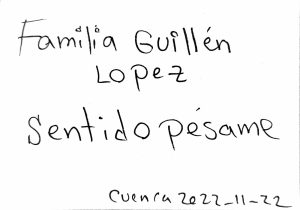 Familia Guillén
Lopez
Sentido pésame
Cuenca 2022-11-22